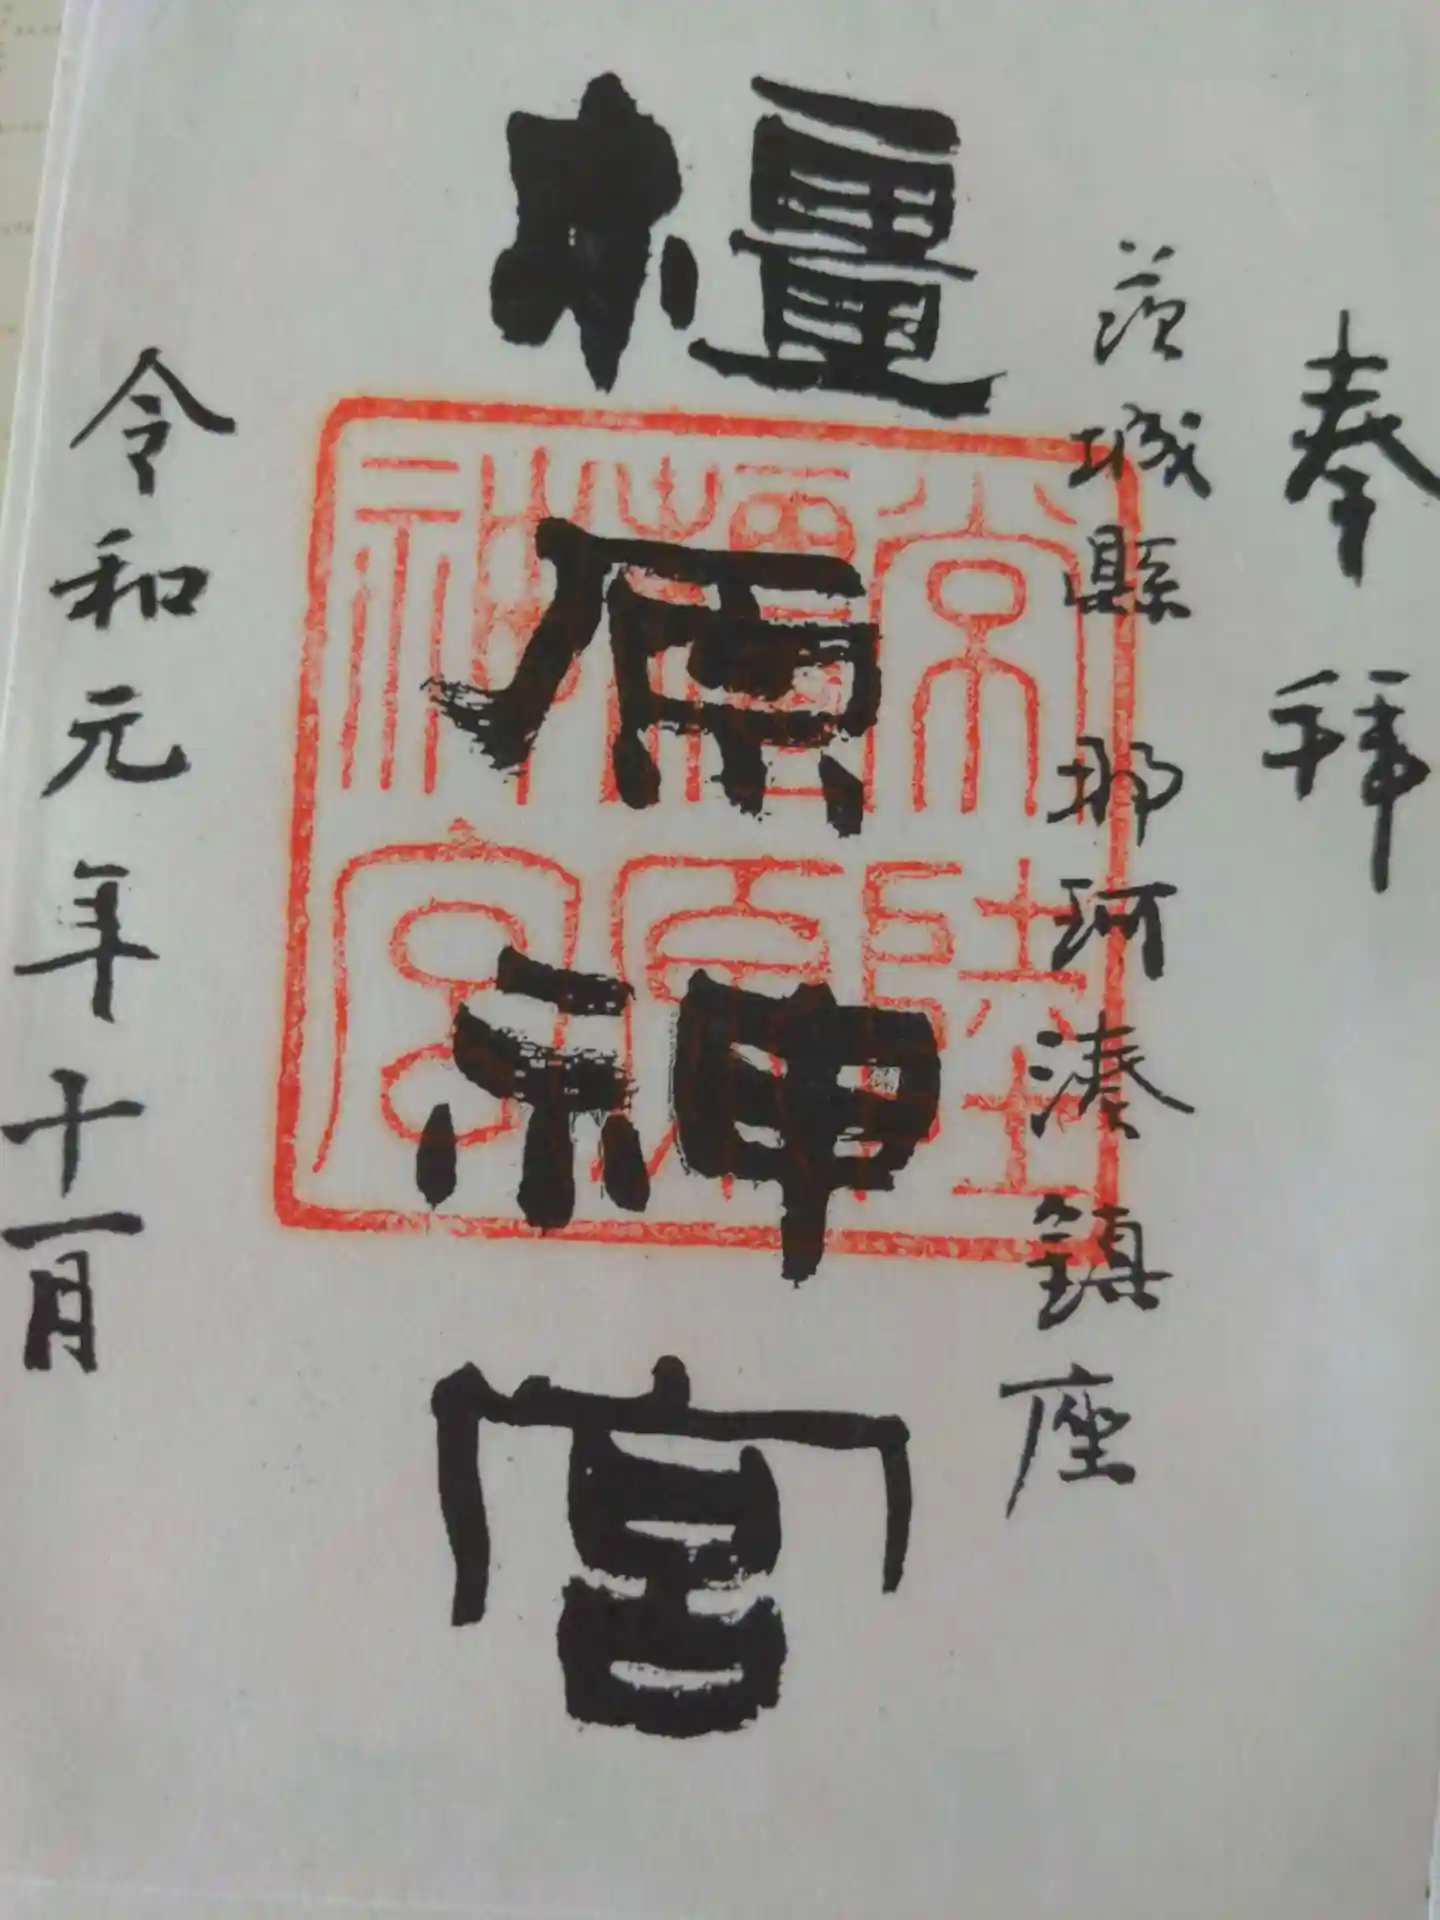 奉拝
茨城縣那珂湊鎮座
橿原神宮
常陸
橿原
神宮
令和元年十一月